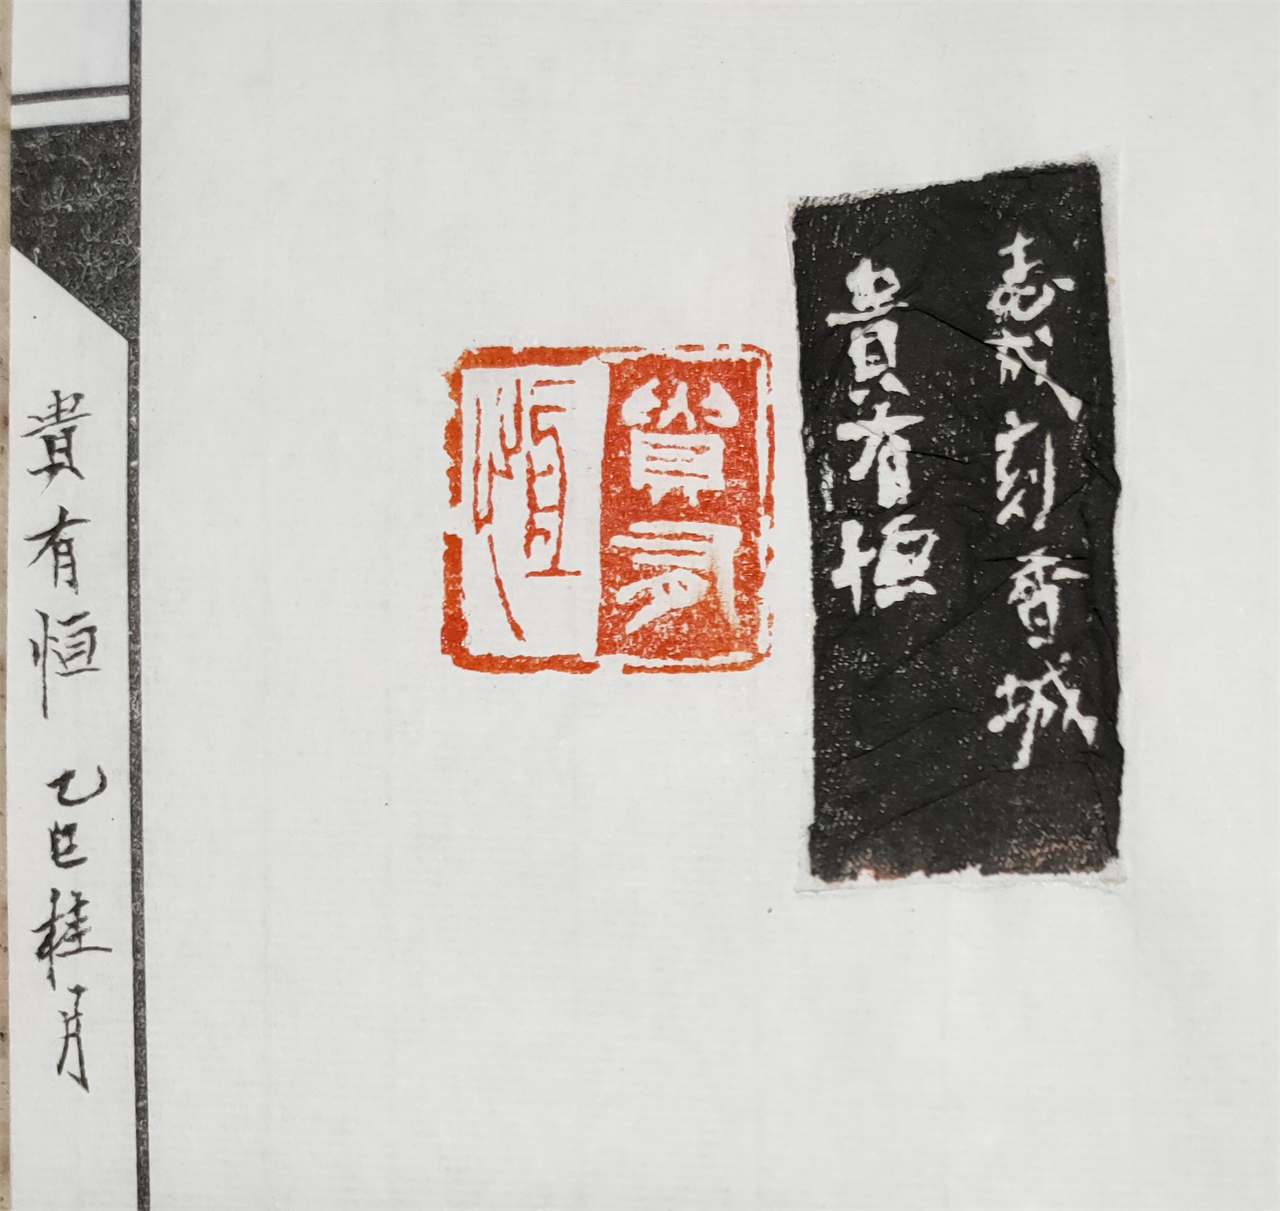 志成刻香城
貴有恒
貴有
恒
貴有恒 乙巳桂月